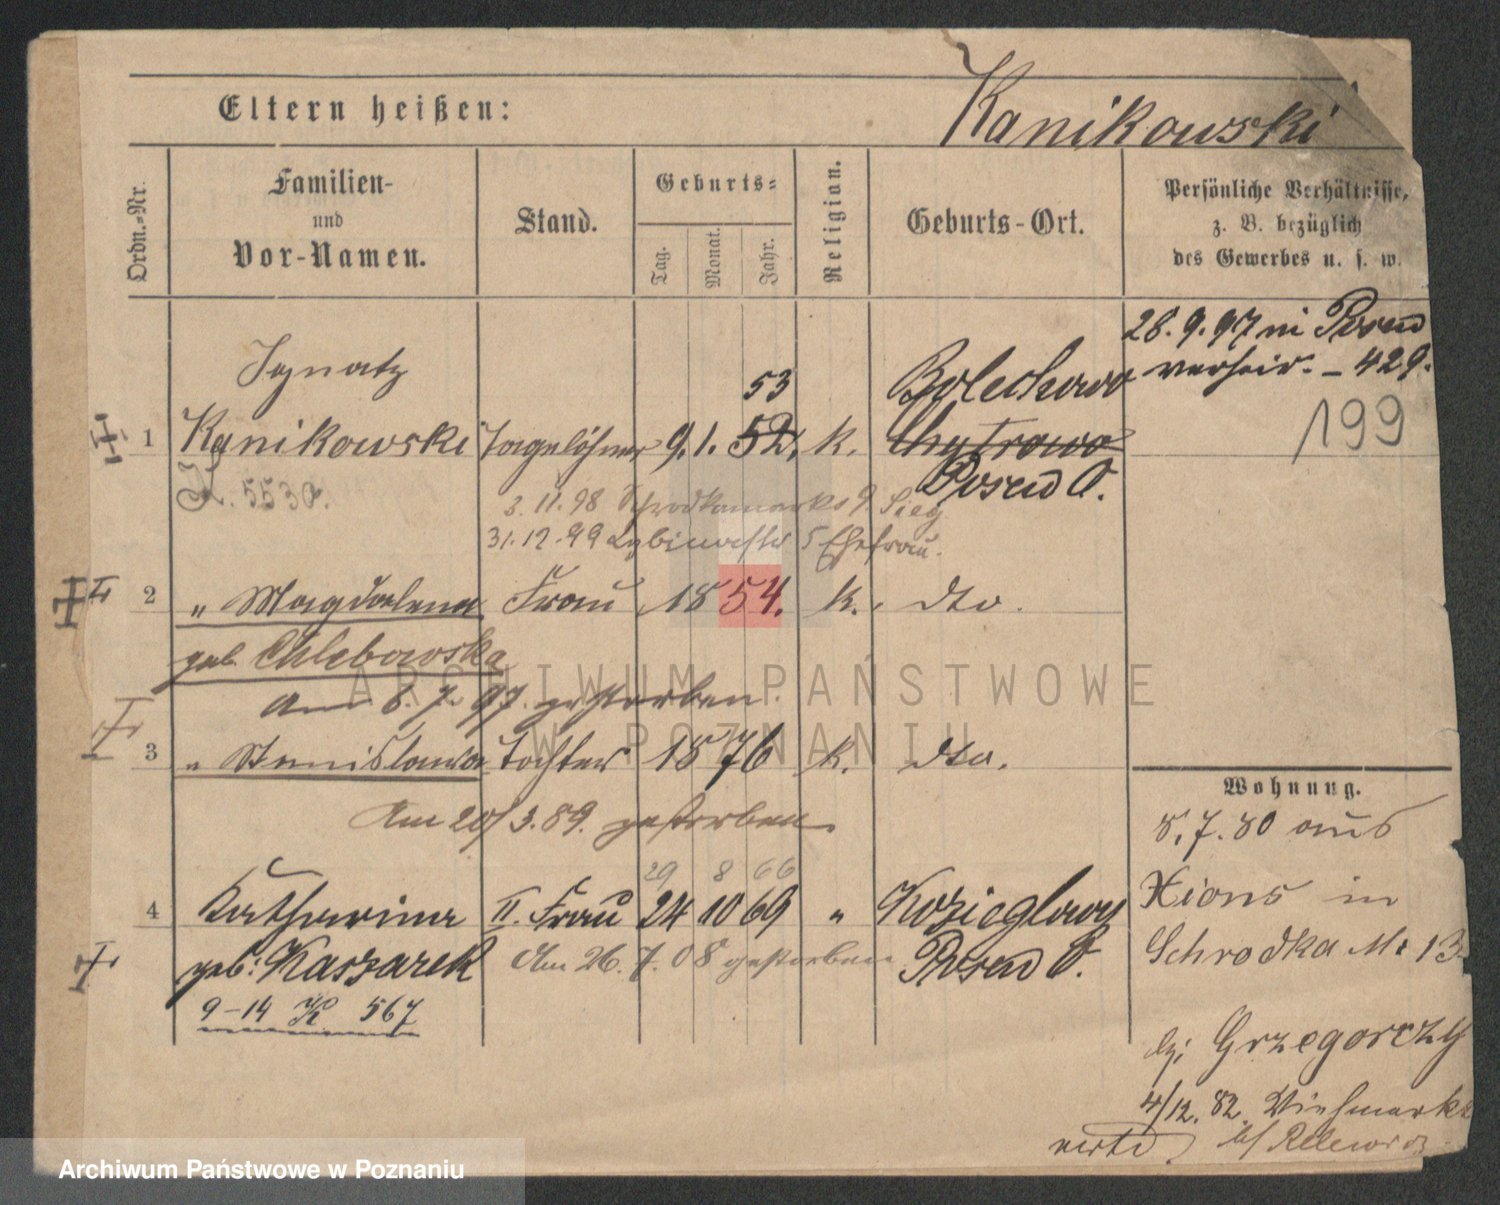 Kanikowski
Eltern heißen:
Ordn.-Nr.
Familien-
und
Vor-Namen.
Stand.
Geburts-
Tag.
Monat.
Jahr.
Religion.
Geburts-Ort.
Persönliche Verhältnisse,
z. B. bezüglich
des Gewerbes u. s. w.
28.9.97 in Posen
verheir. - 429.
199
Ignatz 53 Bolechowo
1 Kanikowski Tagelöhner 9. 1. 52. k. Chytrowo
Posen O.
K. 553a.
3.11.98 Schrodkamarkt 9
31.12.99 5 Ehefrau.
2 " Magdalena Frau 1854. k. dto.
geb. Chlebowska
am 8.7.97. gestorben.
3 " Stanislawa Tochter 1876 k. dto.
Am 20/3.89. gestorben
29 8 66
4 Katharina II. Frau 24 10 69 " Koziegłowy
geb: Kaszarek Am 26.7.08 gestorben Posen O.
9-14 K 567
Wohnung.
8.7.80 aus
Xions in
Schrodka No 13
Grzegorczy
4/12.82. Viehmarkt
ARCHIWUM PAŃSTWOWE
W POZNANIU
Archiwum Państwowe w Poznaniu